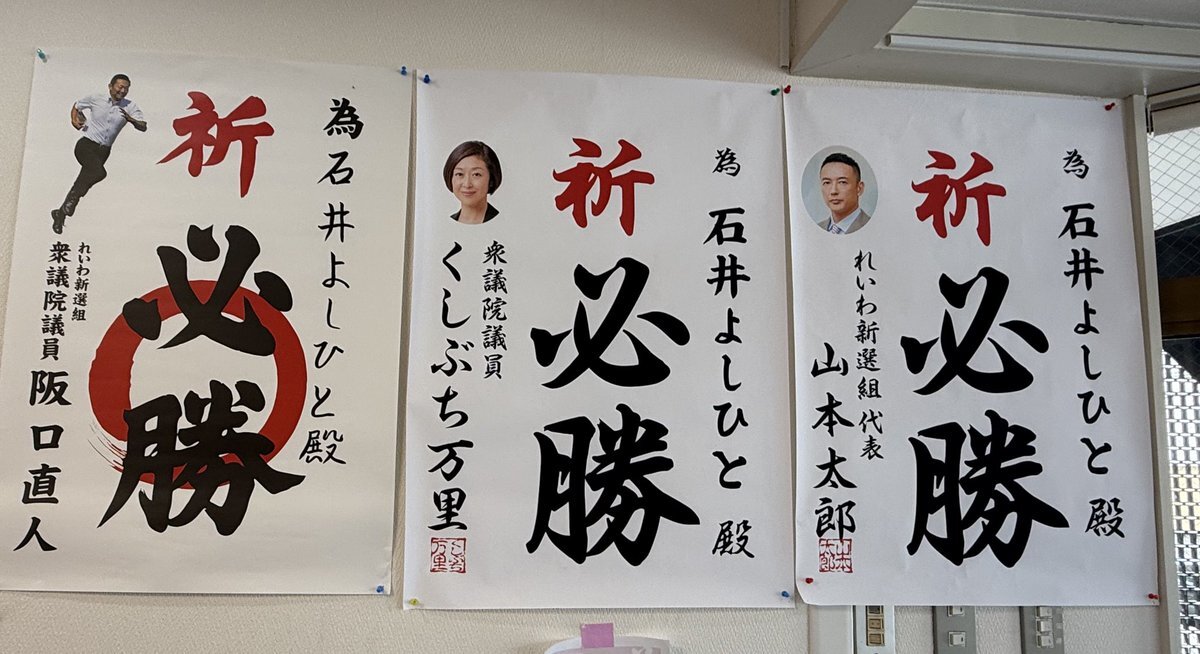 為石井よしひと殿
祈
必勝
れいわ新選組
衆議院議員 阪口直人
為 石井よしひと 殿
祈
必勝
衆議院議員
くしぶち万里
為 石井よしひと 殿
祈
必勝
れいわ新選組 代表
山本太郎
山本
太郎